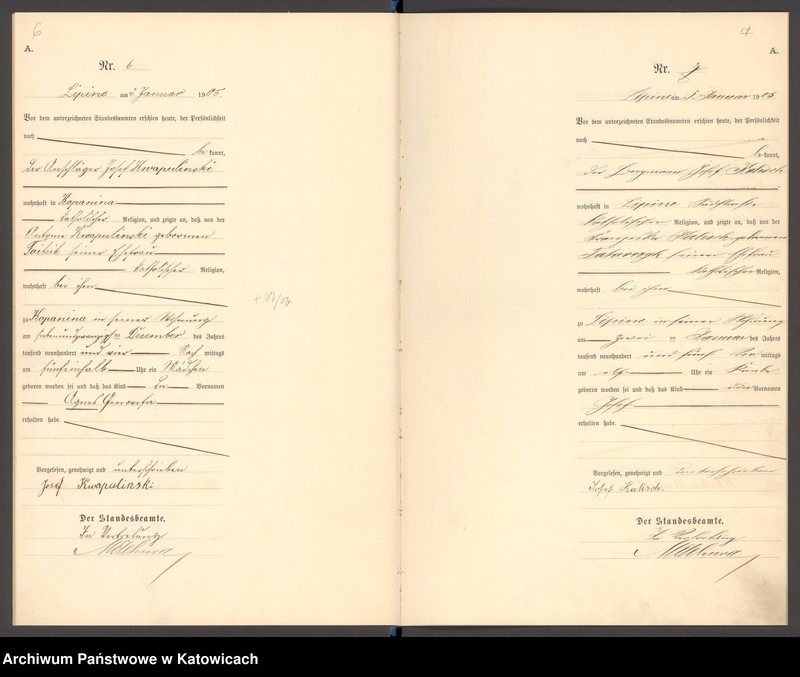 6
A.
Nr. 6
Lipine am 2 Januar 1905.
Vor dem unterzeichneten Standesbeamten erschien heute, der Persönlichkeit
nach
be kannt,
der Anschläger Josef Kwapulinski
wohnhaft in Kopanina
katholischer Religion, und zeigte an, daß von der
Antonie Kwapulinski geborenen
seiner Ehefrau
katholischer Religion,
wohnhaft bei ihm
zu Kopanina in seiner Wohnung
am siebenundzwanzigsten Dezember des Jahres
tausend neunhundert und vier Nach mittags
um fünfeinhalb Uhr ein Mädchen
geboren worden sei und daß das Kind die Vornamen
Agnes Genovefa
erhalten habe.
Vorgelesen, genehmigt und unterschrieben
Josef Kwapulinski
Der Standesbeamte.
In Vertretung
7
A.
Nr. 7
Lipine am 3. Januar 1905
Vor dem unterzeichneten Standesbeamten erschien heute, der Persönlichkeit
nach
be kannt,
der Bergmann Josef Kalisch
wohnhaft in Lipine
katholischer Religion, und zeigte an, daß von der
Franziska Kalisch geborenen
Tatarczyk seiner Ehefrau
katholischer Religion,
wohnhaft bei ihm
zu Lipine in seiner Wohnung
am zwei ten Januar des Jahres
tausend neunhundert und fünf Vor mittags
um elf Uhr ein Knabe
geboren worden sei und daß das Kind den Vornamen
Josef
erhalten habe.
Vorgelesen, genehmigt und unterschrieben
Josef Kalisch.
Der Standesbeamte.
In Vertretung
Archiwum Państwowe w Katowicach